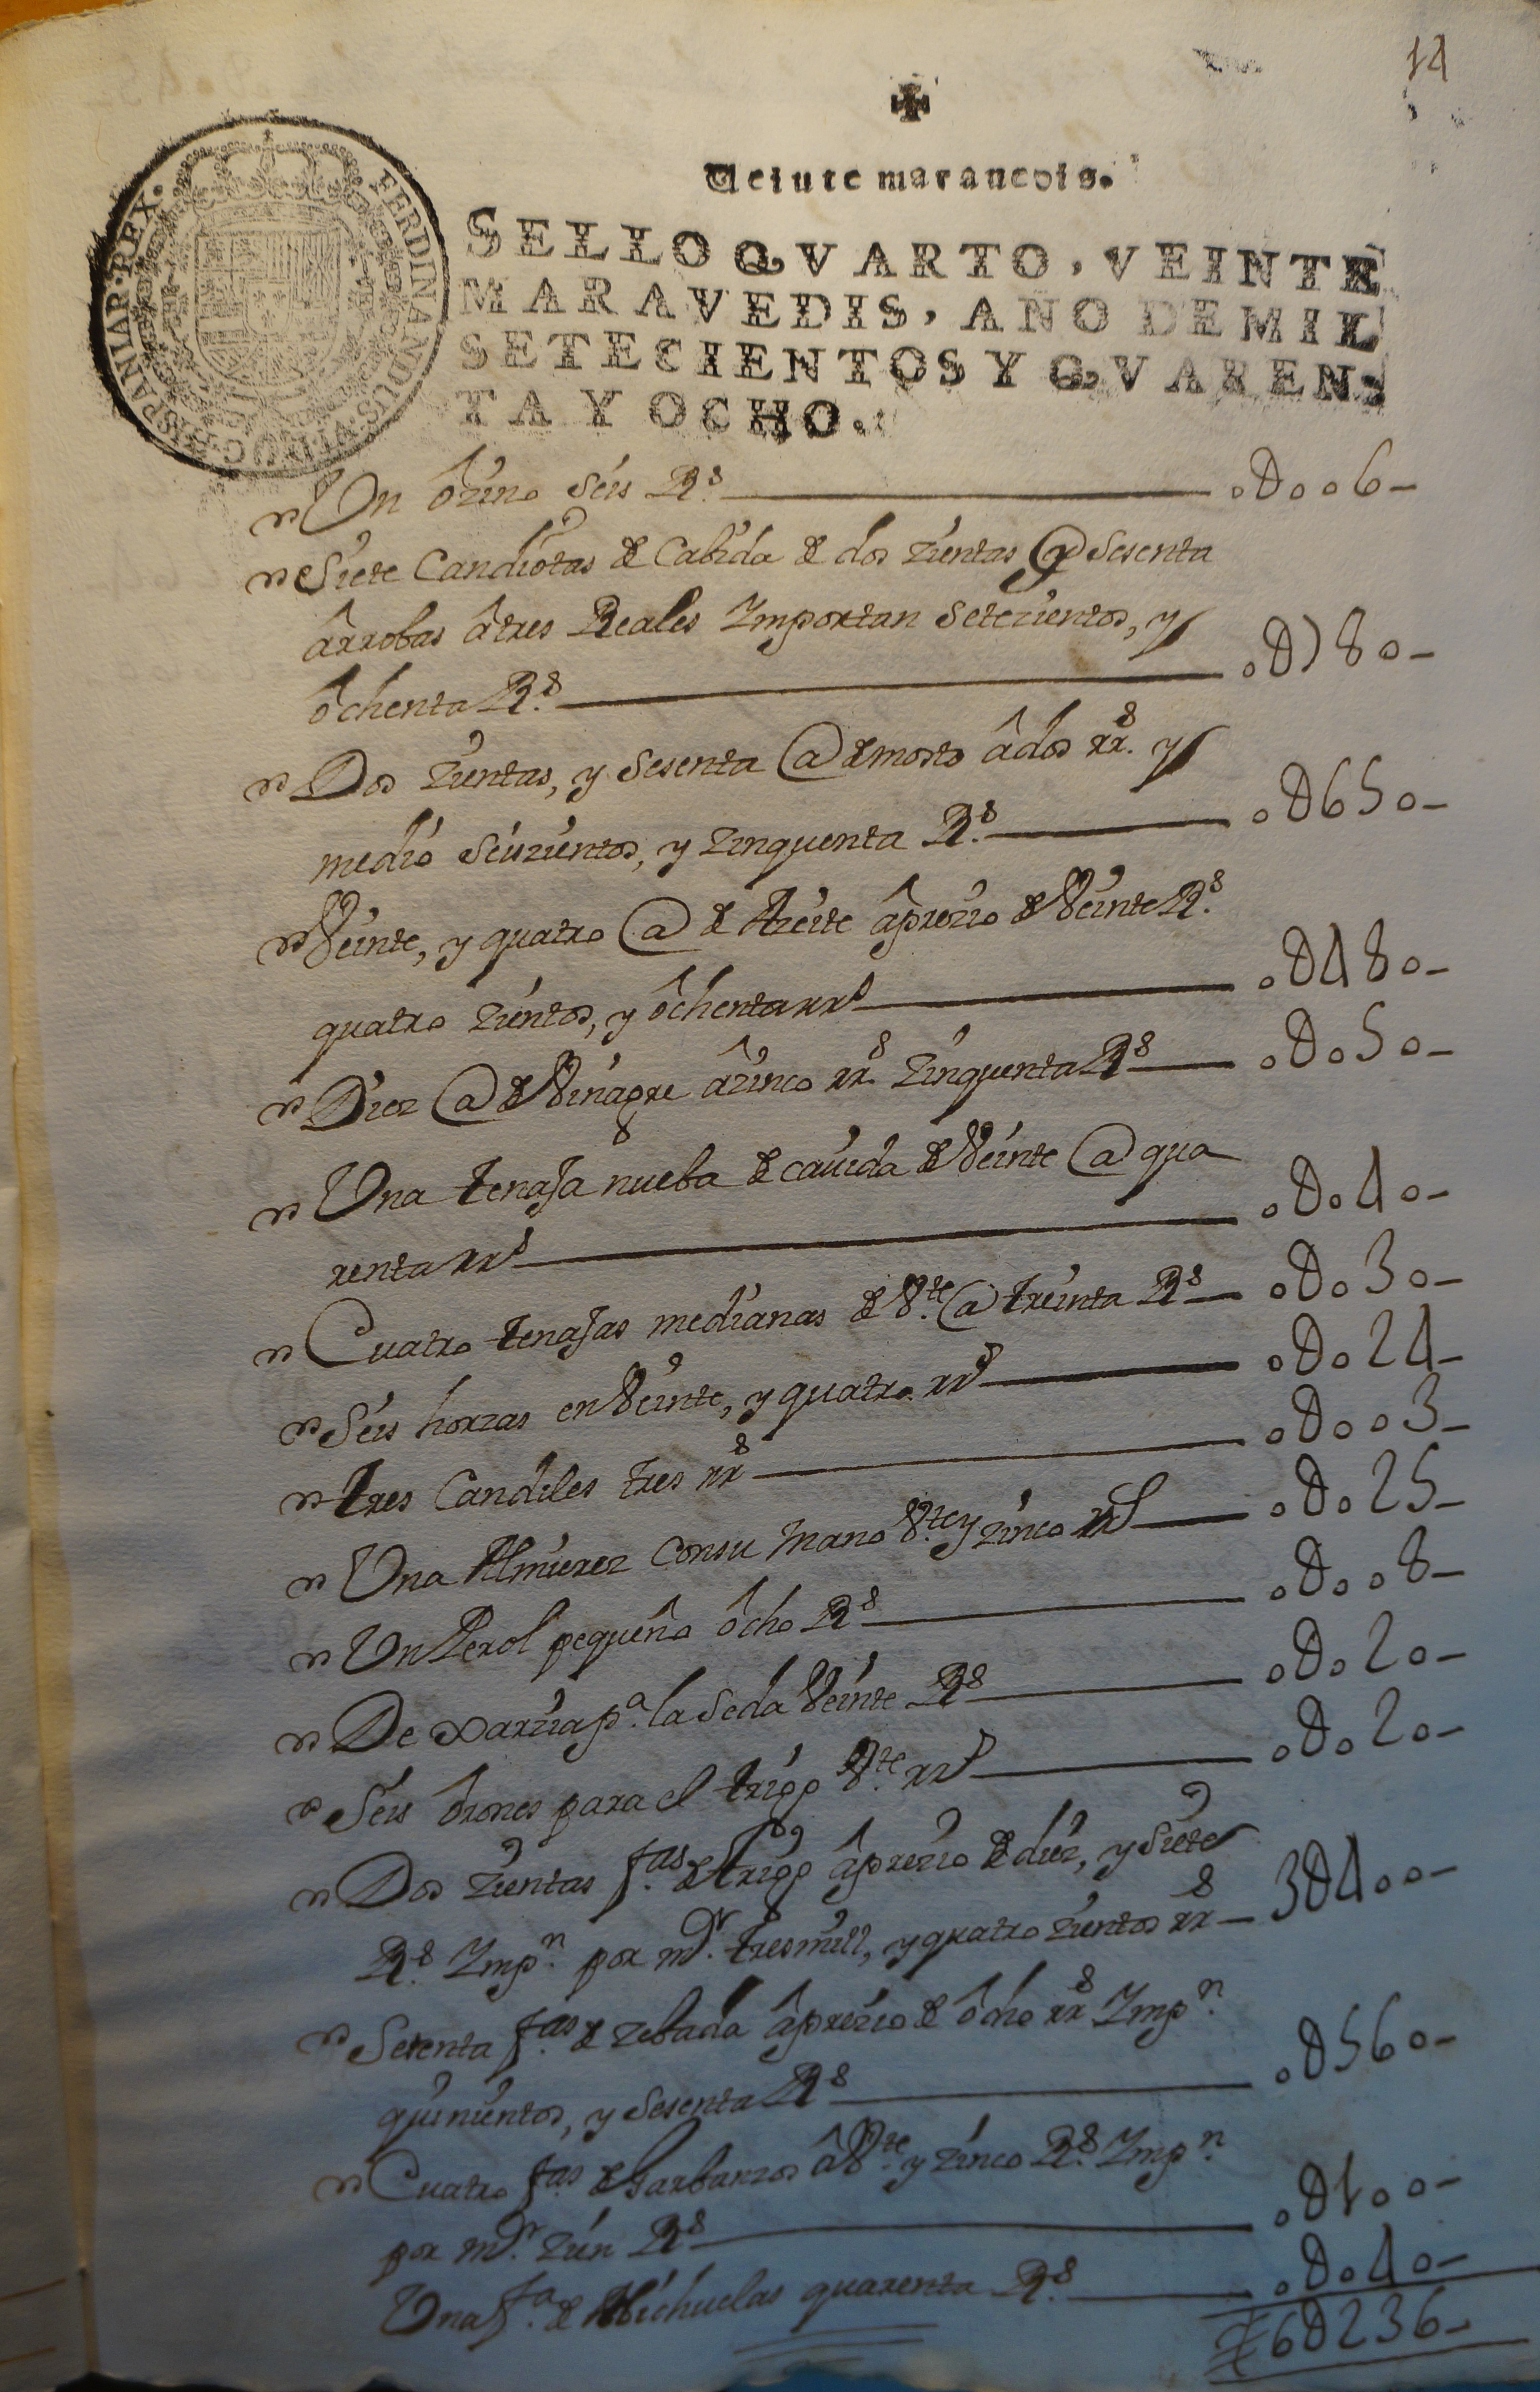 14
Veinte maravedis.
SELLO QVARTO, VEINTE
MARAVEDIS, AÑO DE MIL
SETECIENTOS Y QVAREN-
TA Y OCHO.
FERDINANDUS·VI·D·G·HISPANIAR·REX·
Un ôrino seis Rs. 0U006
Siete Candiotas de Cabida de dos zientas y Sesenta
ârrobas âtres Reales Importan Setezientos, y
ôchenta Rs. 0U780
Dos zientas, y sesenta @ de mosto âdos rrs. y
medio seiszientos, y zinquenta Rs. 0U650
Veinte, y quatro @ de Azeite âprezio de Veinte Rs.
quatro zientos, y ôchenta rrs 0U480
Diez @ de Vinagre âzinco rrs zinquenta Rs 0U050
Una tenaja nueba de cavida de Veinte @ qua
renta rrs 0U040
Cuatro tenajas medianas de Vte. @ treinta Rs 0U030
Seis horzas en Veinte, y quatro rrs 0U024
tres Candiles tres rrs 0U003
Una Almirez con su mano Vte. y zinco rrs 0U025
Un Perol pequeño ôcho Rs 0U008
De xarzia pa. la Seda Veinte Rs 0U020
Seis ôrones para el trigo Vte. rrs 0U020
Dos zientas fas. de trigo âprezio de diez, y Siete
Rs. Impn. por mr. tres mill, y quatro zientos rrs 3U400
Setenta fas. de zebada âprezio de ôcho rrs Impn.
quinientos, y sesenta Rs 0U560
Cuatro fas de Garbanzos âVte. y zinco Rs. Impn.
por mr. zien Rs 0U100
Una fa. de Abichuelas quarenta Rs. 0U040
6U236